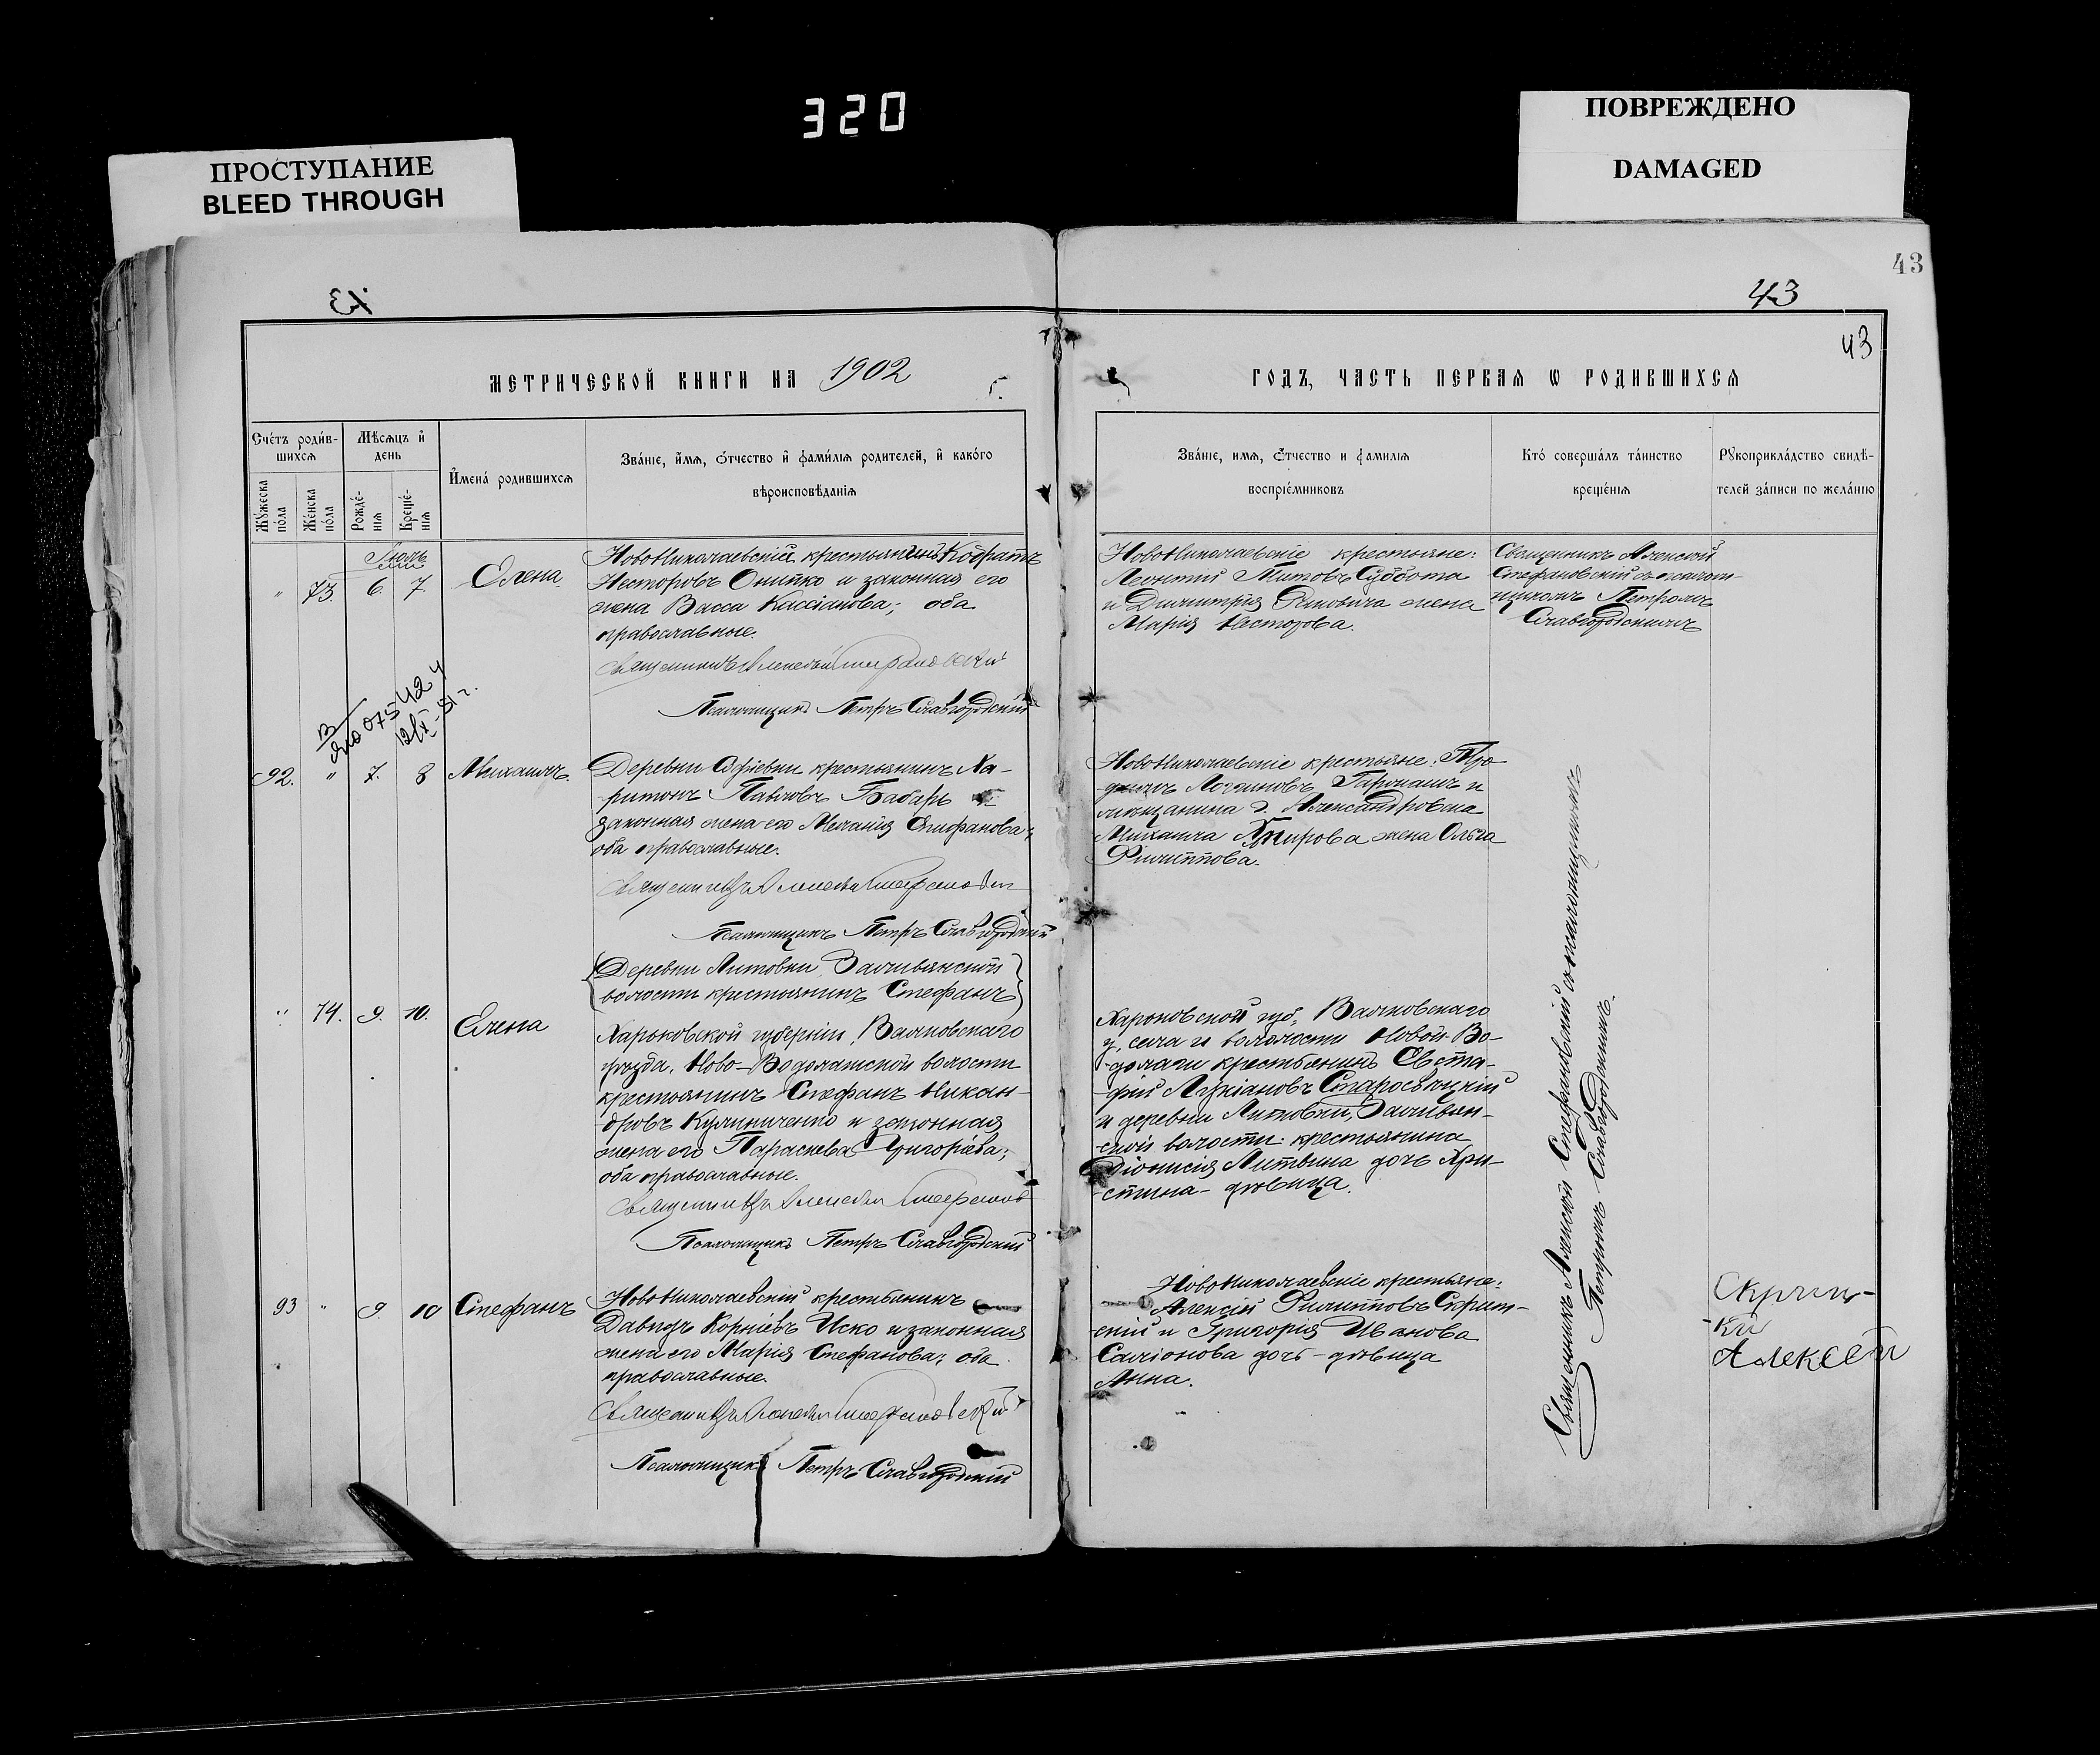 320
ПРОСТУПАНИЕ
BLEED THROUGH
ПОВРЕЖДЕНО
DAMAGED
43
43
43
МЕТРИЧЕСКОЙ КНИГИ НА 1902 г.
ГОДЪ, ЧАСТЬ ПЕРВАЯ Ѡ РОДИВШИХСЯ
Счétъ родив-
шихся
Мѣсяцъ и
день
Имена родившихся
Званіе, имя, отчество и фамилія родителей, и какого
вѣроисповѣданія
Мужеска
пола
Женска
пола
Рожде-
нія
Креще-
нія
Званіе, имя, отчество и фамилія
воспріемниковъ
Кто совершалъ таинство
крещенія
Рукоприкладство свидѣ-
телей записи по желанію
Іюль
" 73. 6. 7. Елена
НовоНиколаевскій крестьянинъ Кодратъ
Несторовъ Онипко и законная его
жена Васса Кассіанова; оба
православные.
Священникъ Алексей Стефановскій
Псаломщикъ Петръ Славгородскій
НовоНиколаевскіе крестьяне:
Леонтій Титовъ Суббота
и Димитрія жена
Марія Несторова.
Священникъ Алексей
Стефановскій съ псалом-
щикомъ Петромъ
Славгородскимъ
92. " 7. 8 Михаилъ.
Деревни Софіевки крестьянинъ Ха-
ритонъ Павловъ Бабарь и
законная жена его Меланія Епифанова;
оба православные.
Священникъ Алексей Стефановскій
Псаломщикъ Петръ Славгородскій
НовоНиколаевскіе крестьяне: Про-
Логгиновъ и
мѣщанина г. Александровска
Михаила жена Ольга
Филиппова.
" 74. 9. 10. Елена
(Деревни Литовки, Заливянской
волости крестьянинъ Стефанъ)
Харьковской губерніи, Валковскаго
уѣзда, Ново-Водолажской волости
крестьянинъ Стефанъ Никан-
дровъ Кулиниченко и законная
жена его Параскева Григоріева;
оба православные.
Священникъ Алексей Стефановс
Псаломщикъ Петръ Славгородскій
Харьковской губ., Валковскаго
у., села и волости Новой-Во-
долаги крестьянинъ Евста-
фій Лукіановъ Старосвѣцкій
и деревни Литовки, Заливян-
ской волости крестьянина
Діонисія Литвина дочь Хри-
стина - дѣвица.
Священникъ Алексей Стефановскій съ псаломщикомъ
Петромъ Славгородскимъ.
93 " 9. 10 Стефанъ
НовоНиколаевскій крестьянинъ
Давидъ Корніевъ Иско и законная
жена его Марія Стефанова; оба
православные.
Священникъ Алексей Стефановскій
Псаломщикъ Петръ Славгородскій
НовоНиколаевскіе крестьяне:
Алексій Филипповъ Скрип-
скій и Григорія Иванова
Саміонова дочь - дѣвица
Анна.
Алексей